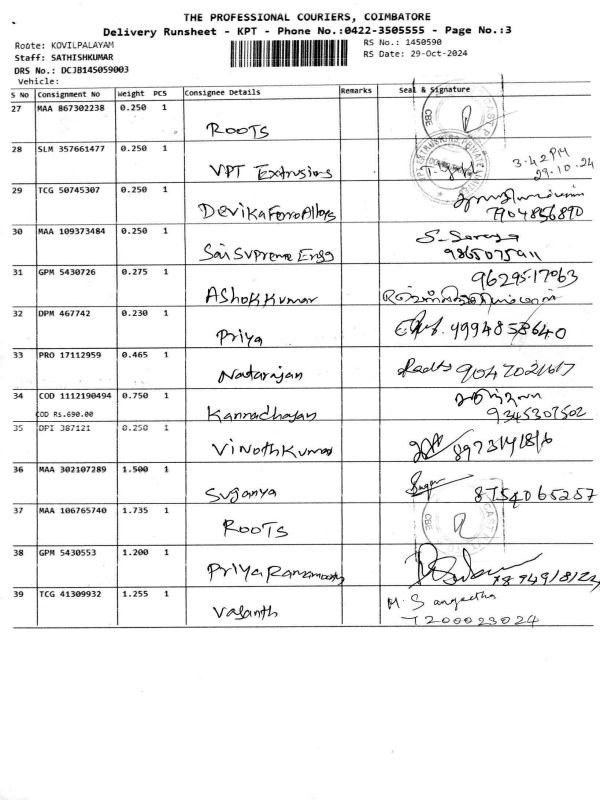 THE PROFESSIONAL COURIERS, COIMBATORE
Delivery Runsheet - KPT - Phone No.:0422-3505555 - Page No.:3
Route: KOVILPALAYAM RS No.: 1450590
Staff: SATHISHKUMAR RS Date: 29-Oct-2024
DRS No.: DCJB145059003
Vehicle:
S No Consignment No Weight PCS Consignee Details Remarks Seal & Signature
27 MAA 867302238 0.250 1
ROOTS
CBE
28 SLM 357661477 0.250 1
VPT Extrusions 3.42 PM
29.10.24
29 TCG 50745307 0.250 1
Devika Ferro Alloys 7904856890
30 MAA 109373484 0.250 1
Sai Supreme Engg S. Saranya
9865075911
31 GPM 5430726 0.275 1
Ashok Kumar 96295-17063
32 DPM 467742 0.230 1
Priya 9994858640
33 PRO 17112959 0.465 1
Natarajan 9047021617
34 COD 1112190494 0.750 1
COD Rs.690.00 Kannadhasan 9345307502
35 DPI 387121 0.250 1
Vinoth Kumar
36 MAA 302107289 1.500 1
Suganya 8754065257
37 MAA 106765740 1.735 1
ROOTS
CBE
38 GPM 5430553 1.200 1
Priya Ramamoorthy
39 TCG 41309932 1.255 1
Vasanth M. Sangeetha
7200023024